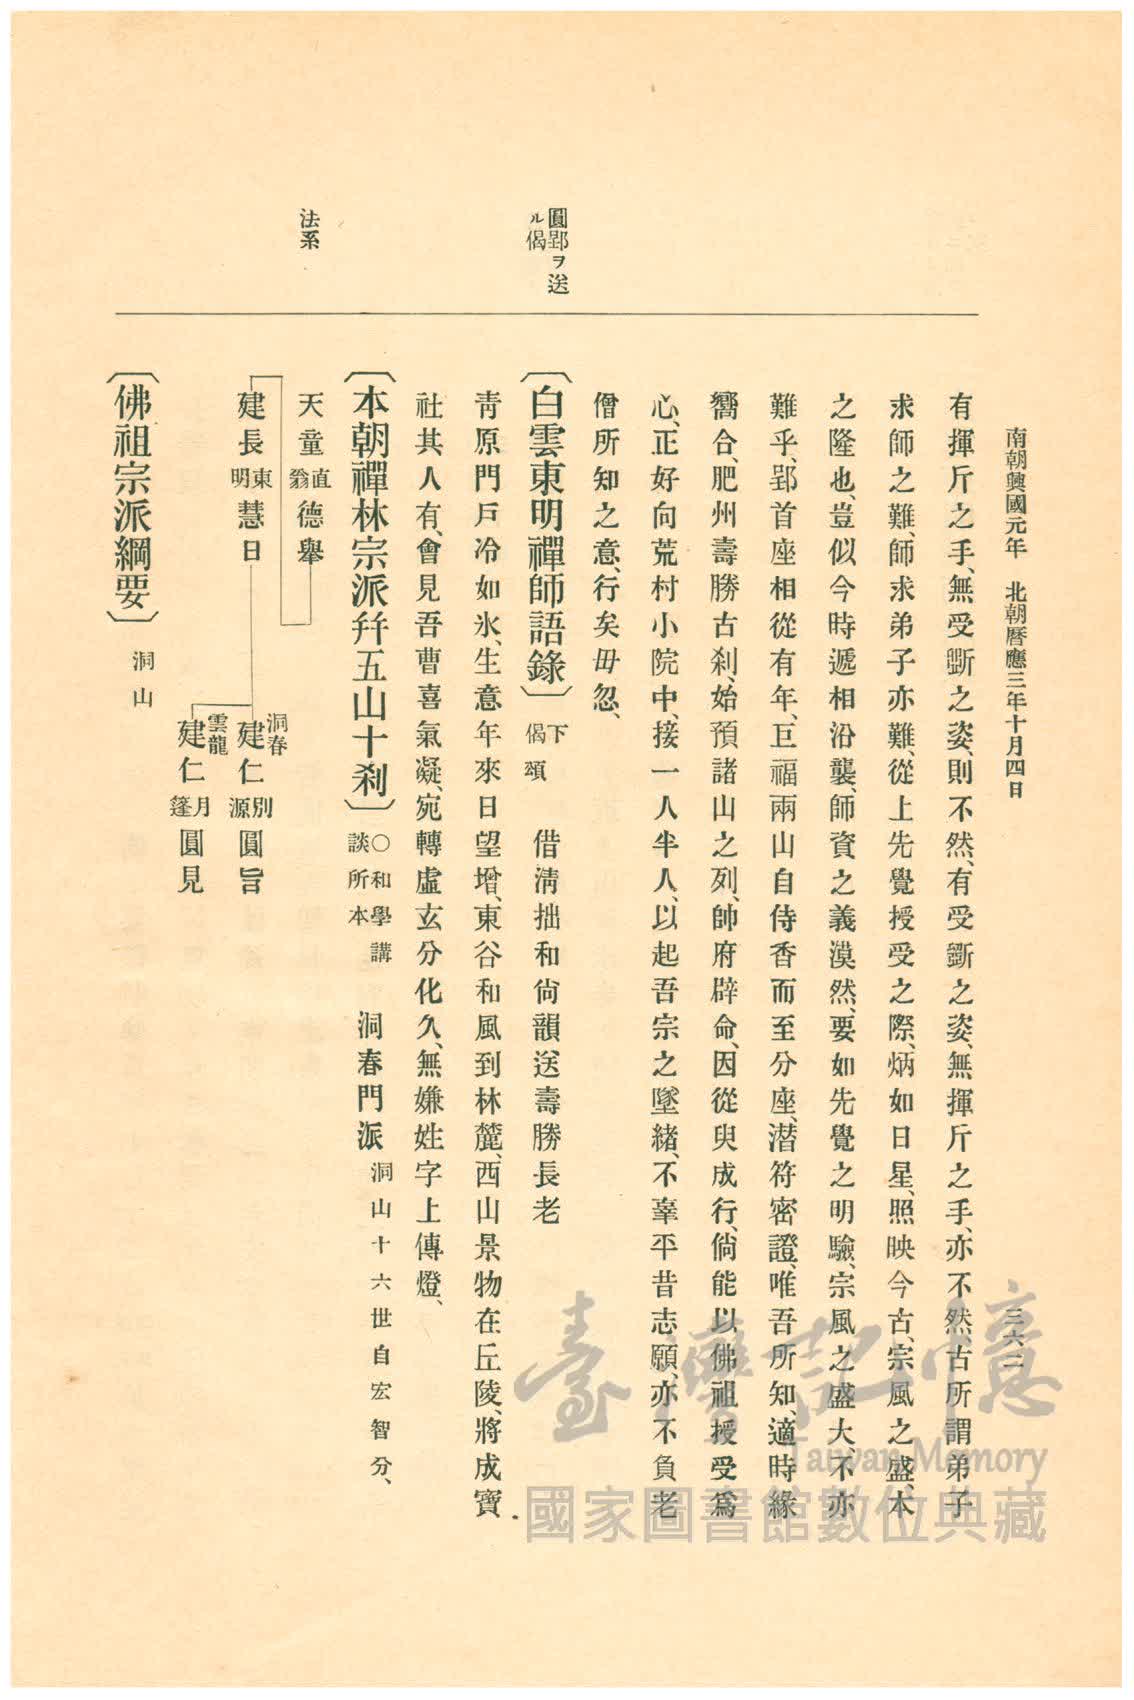 南朝興國元年 北朝曆應三年十月四日 三六二
有揮斤之手、無受斵之姿、則不然、有受斵之姿、無揮斤之手、亦不然、古所謂弟子
求師之難、師求弟子亦難、從上先覺授受之際、炳如日星、照映今古、宗風之盛、本
之隆也、豈似今時遞相沿襲、師資之義漠然、要如先覺之明驗、宗風之盛大、不亦
難乎、郢首座相從有年、巨福兩山自侍香而至分座、潛符密證、唯吾所知、適時緣
嚮合、肥州壽勝古刹、始預諸山之列、帥府辟命、因從臾成行、倘能以佛祖授受爲
心、正好向荒村小院中、接一人半人、以起吾宗之墜緒、不辜平昔志願、亦不負老
僧所知之意、行矣毋忽、
圓郢ヲ送
ル偈
〔白雲東明禪師語錄〕 下
偈頌
借淸拙和尙韻送壽勝長老
靑原門戶冷如氷、生意年來日望增、東谷和風到林麓、西山景物在丘陵、將成寶
社其人有、會見吾曹喜氣凝、宛轉虛玄分化久、無嫌姓字上傳燈、
法系
〔本朝禪林宗派幷五山十刹〕 ○和學講
談所本
洞春門派 洞山十六世自宏智分、
天童直翁德舉
建長東明慧日
洞春
建仁別源圓旨
雲龍
建仁月篷圓見
〔佛祖宗派綱要〕 洞山
臺灣記憶
Taiwan Memory
國家圖書館數位典藏